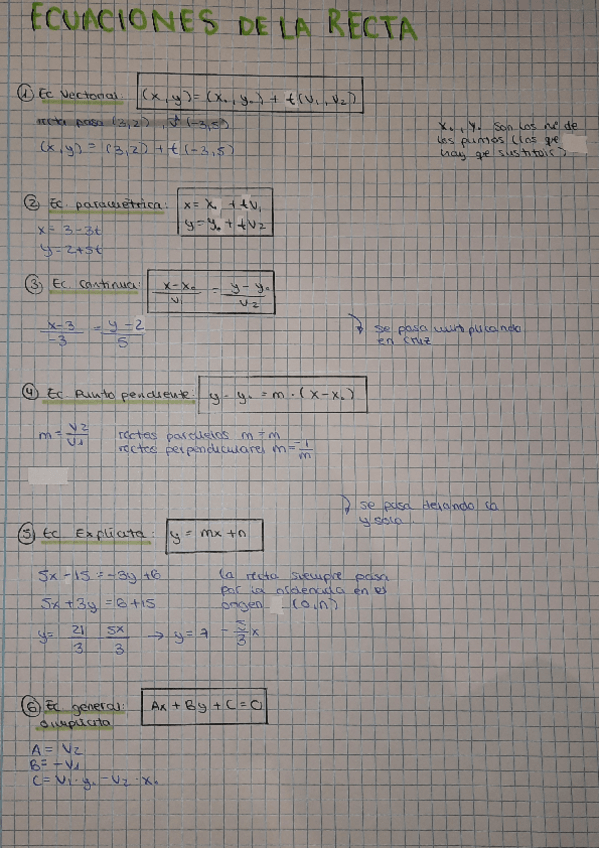 ECUACIONES DE LA RECTA
① Ec Vectorial: (x,y)=(x₀,y₀)+t(v₁,v₂)
recta pasa (3,2), v⃗ (-3,5)
(x,y) = (3,2) + t(-3,5)
x₀, y₀ son los nº de
los puntos (los que
hay que sustituir)
② Ec. paramétrica: x = x₀ + tv₁
y = y₀ + tv₂
x = 3-3t
y = 2+5t
③ Ec. continua: x-x₀/v₁ = y-y₀/v₂
x-3/-3 = y-2/5
se pasa multiplicando
en cruz
④ Ec Punto pendiente: y-y₀ = m·(x-x₀)
m = v2/v1 rectas paralelas m = m
rectas perpendiculares m = -1/m
se pasa dejando la
y sola
⑤ Ec Explícita: y = mx+n
5x-15 = -3y+6
5x+3y = 6+15
y = 21/3 5x/3 → y = 7 - 5/3 x
la recta siempre pasa
por la ordenada en el
origen (0,n)
⑥ Ec general: Ax + By + C = 0
o implícita
A = V2
B = -V1
C = V1·y₀ - V2·x₀